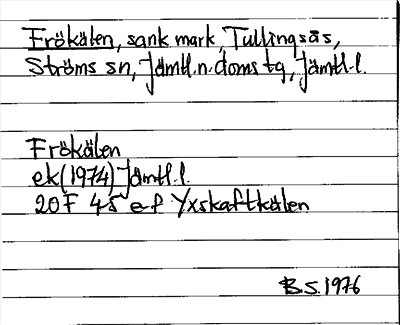 Frökälen, sank mark, Tullingsås,
Ströms sn, Jämtl. n. doms tg, Jämtl. l.
Frökälen
ek (1974) Jämtl. l.
20F 4-5 e-f Yxskaftkälen
B.S. 1976